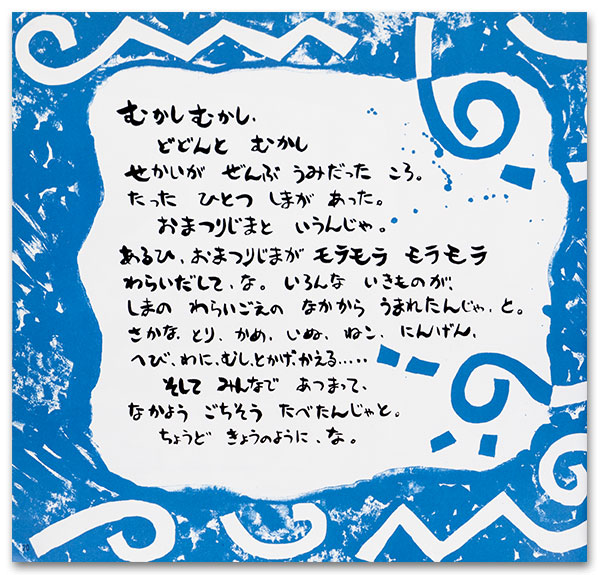 むかしむかし、
どどんと むかし
せかいが ぜんぶ うみだった ころ。
たった ひとつ しまが あった。
おまつりじまと いうんじゃ。
あるひ、おまつりじまが モラモラ モラモラ
わらいだして、な。いろんな いきものが、
しまの わらいごえの なかから うまれたんじゃ、と。
さかな、とり、かめ、いぬ、ねこ、にんげん、
へび、わに、むし、とかげ、かえる.....
そして みんなで あつまって、
なかよう ごちそう たべたんじゃと。
ちょうど きょうのように、な。